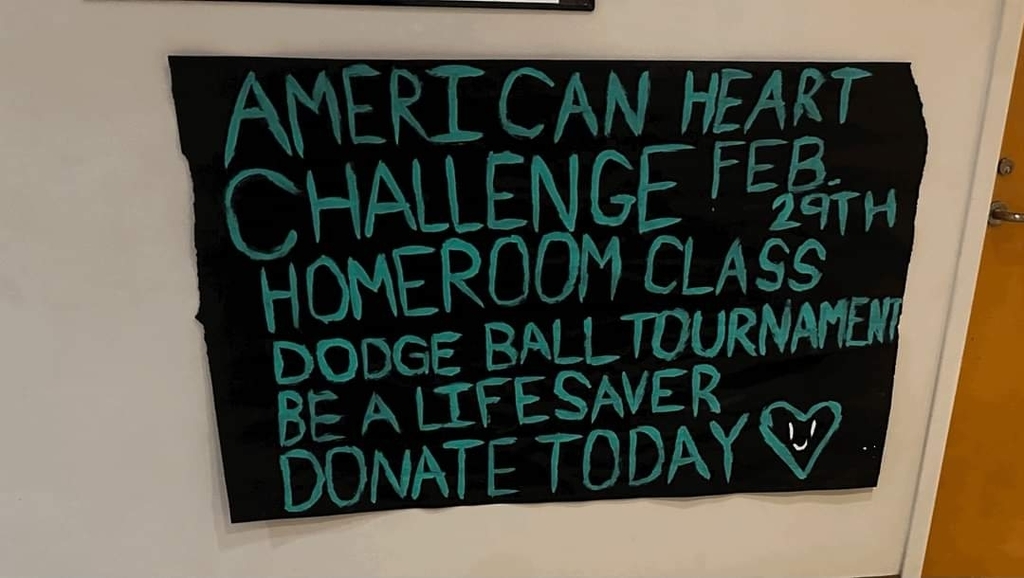 AMERICAN HEART
CHALLENGE FEB.
29TH
HOMEROOM CLASS
DODGE BALL TOURNAMENT
BE A LIFESAVER
DONATE TODAY